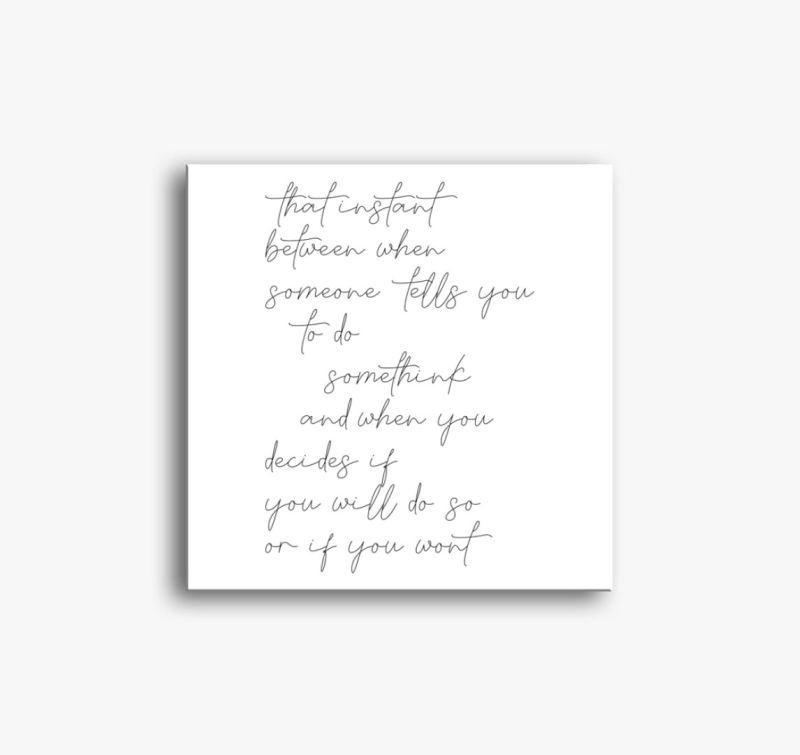 that instant
between when
someone tells you
to do
somethink
and when you
decides if
you will do so
or if you wont